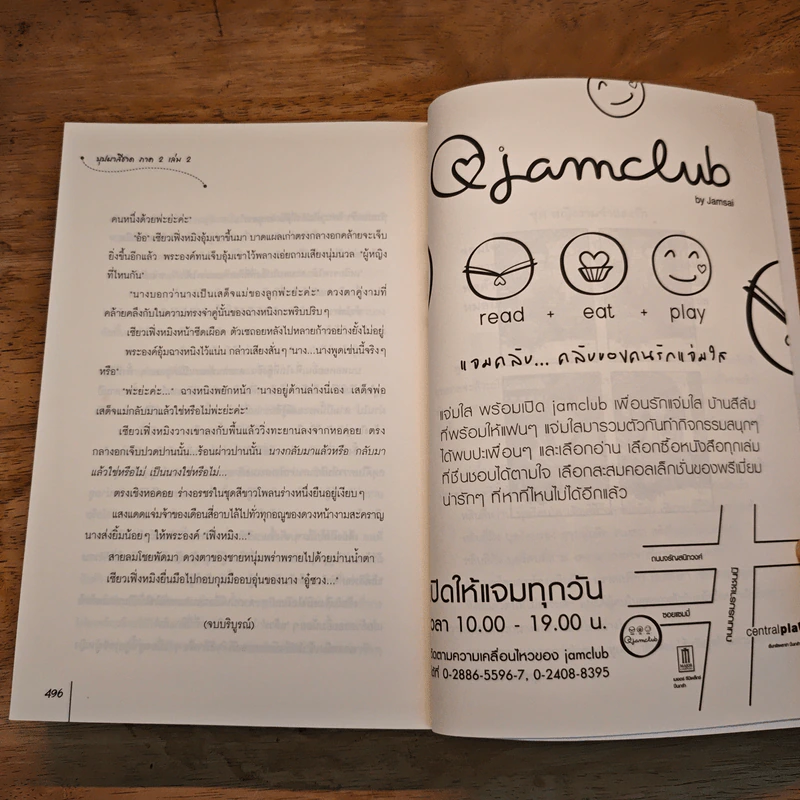 บุปผาสีชาด ภาค 2 เล่ม 2
คนหนึ่งด้วยพ่ะย่ะค่ะ"
"อ้อ" เซียวเฟิ่งหมิงอุ้มเขาขึ้นมา บาดแผลเก่าตรงกลางอกคล้ายจะเจ็บ
ยิ่งขึ้นอีกแล้ว พระองค์ทนเจ็บอุ้มเขาไว้พลางเอ่ยถามเสียงนุ่มนวล "ผู้หญิง
ที่ไหนกัน"
"นางบอกว่านางเป็นเสด็จแม่ของลูกพ่ะย่ะค่ะ" ดวงตาคู่งามที่
คล้ายคลึงกับในความทรงจำคู่นั้นของฉางหนิงกะพริบปริบๆ
เซียวเฟิ่งหมิงหน้าซีดเผือด ตัวเซถอยหลังไปหลายก้าวอย่างยั้งไม่อยู่
พระองค์อุ้มฉางหนิงไว้แน่น กล่าวเสียงสั่นๆ "นาง...นางพูดเช่นนี้จริงๆ
หรือ"
"พ่ะย่ะค่ะ..." ฉางหนิงพยักหน้า "นางอยู่ด้านล่างนี่เอง เสด็จพ่อ
เสด็จแม่กลับมาแล้วใช่หรือไม่พ่ะย่ะค่ะ"
เซียวเฟิ่งหมิงวางเขาลงกับพื้นแล้ววิ่งทะยานลงจากหอคอย ตรง
กลางอกเจ็บปวดปานนั้น...ร้อนผ่าวปานนั้น นางกลับมาแล้วหรือ กลับมา
แล้วใช่หรือไม่ เป็นนางใช่หรือไม่...
ตรงเชิงหอคอย ร่างอรชรในชุดสีขาวโพลนร่างหนึ่งยืนอยู่เงียบๆ
แสงแดดแจ่มจ้าของเดือนสี่อาบไล้ไปทั่วทุกอณูของดวงหน้างามสะคราญ
นางส่งยิ้มน้อยๆ ให้พระองค์ "เฟิ่งหมิง..."
สายลมโชยพัดมา ดวงตาของชายหนุ่มพร่าพรายไปด้วยม่านน้ำตา
เซียวเฟิ่งหมิงยื่นมือไปกอบกุมมืออบอุ่นของนาง "อู๋ซวง..."
(จบบริบูรณ์)
496
@jamclub
by Jamsai
read + eat + play
แจมคลับ... คลับของคนรักแจ่มใส
แจ่มใส พร้อมเปิด jamclub เพื่อนรักแจ่มใส บ้านสีส้ม
ที่พร้อมให้แฟนๆ แจ่มใสมารวมตัวกันทำกิจกรรมสนุกๆ
ได้พบปะเพื่อนๆ และเลือกอ่าน เลือกซื้อหนังสือทุกเล่ม
ที่ชื่นชอบได้ตามใจ เลือกสะสมคอลเล็กชั่นของพรีเมี่ยม
น่ารักๆ ที่หาที่ไหนไม่ได้อีกแล้ว
ถนนจรัญสนิทวงศ์
ปิดให้แจมทุกวัน
วลา 10.00 - 19.00 น.
ซอยแซมมี่
@jamclub
centralpla
ถนนบรมราชชนนี
ติดตามความเคลื่อนไหวของ jamclub
ได้ที่ 0-2886-5596-7, 0-2408-8395